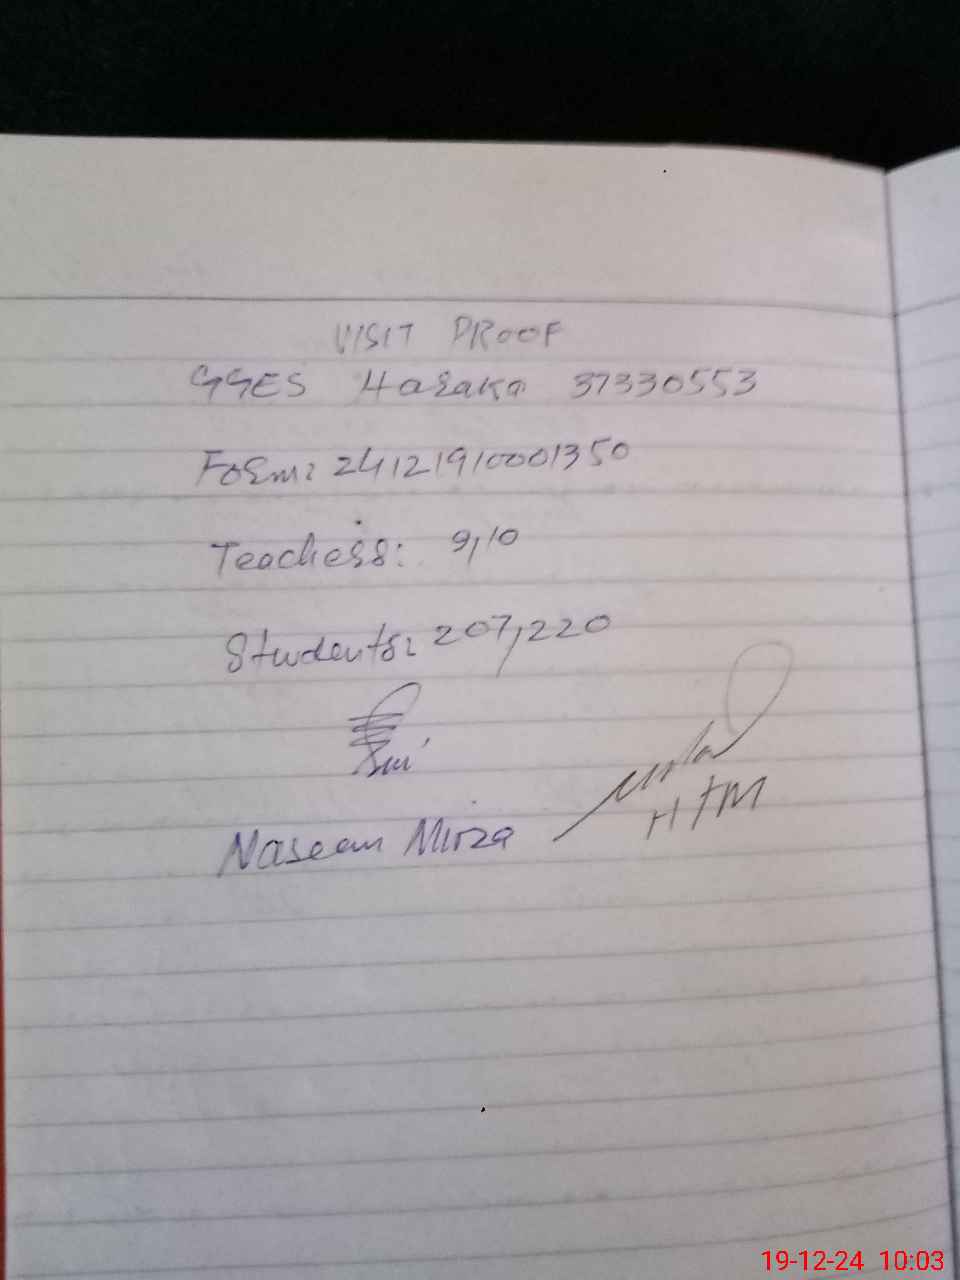 VISIT PROOF
GGES Haraka 37330553
Form: 24121910001350
Teachers: 9,10
Students: 207,220
Naseem Mirza
HTM
19-12-24 10:03